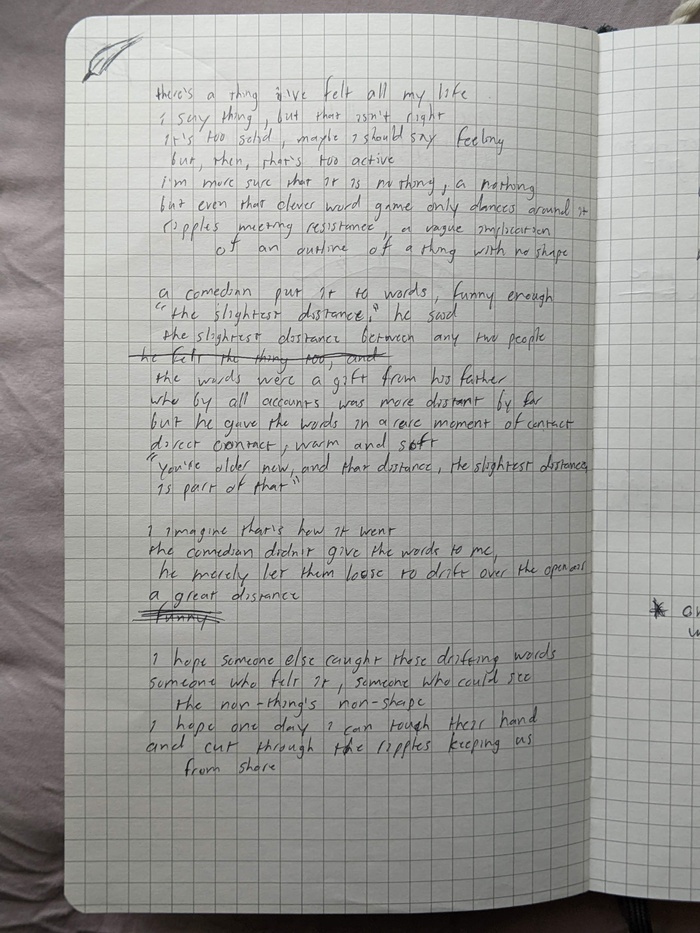 there's a thing i've felt all my life
i say thing, but that isn't right
it's too solid, maybe i should say feeling
but, then, that's too active
i'm more sure that it is no thing, a nothing
but even that clever word game only dances around it
ripples meeting resistance, a vague implication
of an outline of a thing with no shape
a comedian put it to words, funny enough
"the slightest distance," he said
the slightest distance between any two people
he felt the thing too, and
the words were a gift from his father
who by all accounts was more distant by far
but he gave the words in a rare moment of contact
direct contact, warm and soft
"you're older now, and that distance, the slightest distance,
is part of that"
i imagine that's how it went
the comedian didn't give the words to me,
he merely let them loose to drift over the open air
a great distance
funny
i hope someone else caught these drifting words
someone who felt it, someone who could see
the non-thing's non-shape
i hope one day i can touch their hand
and cut through the ripples keeping us
from shore